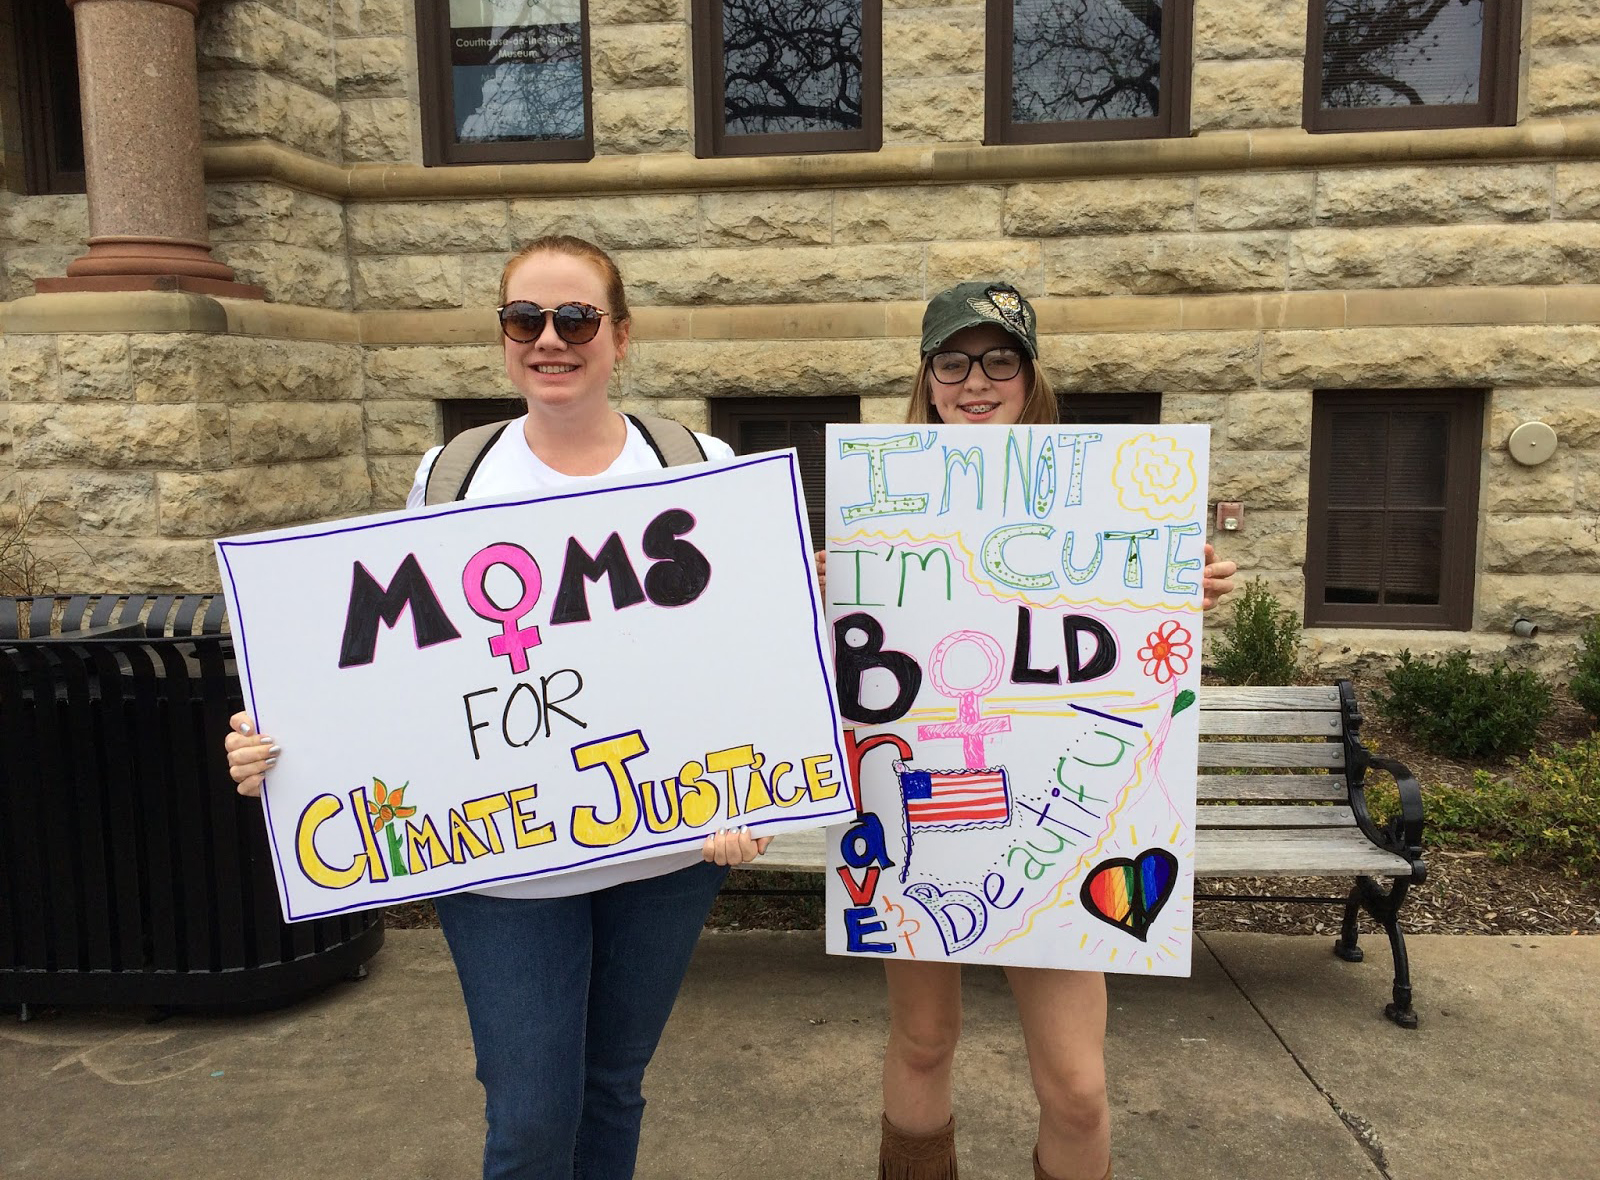 Courthouse-on-the-Square
Museum
MOMS
FOR
CLiMATE JUSTiCE
I'M NOT
CUTE
I'M
BOLD
BraVE & Beautiful